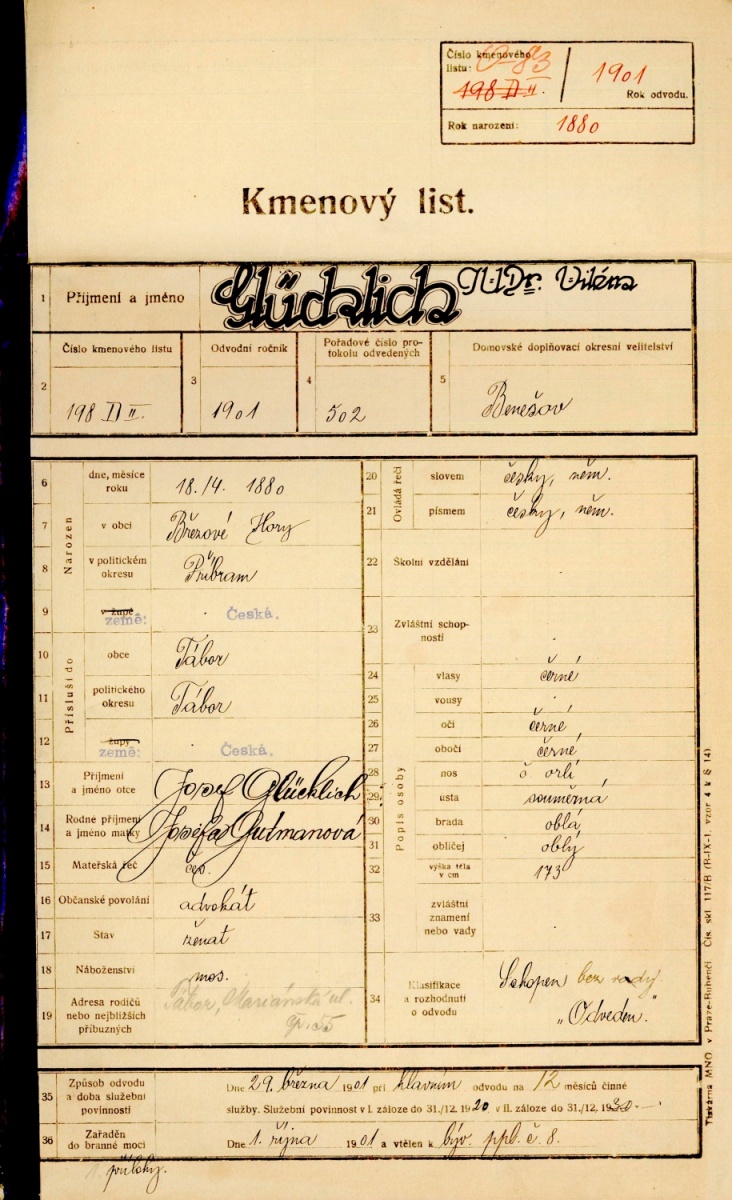 Číslo kmenového
listu:
198 D II.
1901
Rok odvodu.
Rok narození: 1880
Kmenový list.
1 Příjmení a jméno Glücklich JUDr. Vilém
2 Číslo kmenového listu 198 D II.
3 Odvodní ročník 1901
4 Pořadové číslo pro-
tokolu odvedených 502
5 Domovské doplňovací okresní velitelství Benešov
Narozen
6 dne, měsíce
roku 18./4. 1880
7 v obci Březové Hory
8 v politickém
okresu Příbram
9 v župě
země: Česká.
Přísluší do
10 obce Tábor
11 politického
okresu Tábor
12 župy
země: Česká.
13 Příjmení
a jméno otce Josef Glücklich
14 Rodné příjmení
a jméno matky Josefa Gutmanová
15 Mateřská řeč čes.
16 Občanské povolání advokát
17 Stav ženat
18 Náboženství mos.
19 Adresa rodičů
nebo nejbližších
příbuzných Tábor, Mariánská ul.
čp. 55
Ovládá řeči
20 slovem česky, něm.
21 písmem česky, něm.
22 Školní vzdělání
23 Zvláštní schop-
nosti
Popis osoby
24 vlasy černé
25 vousy
26 oči černé
27 obočí černé
28 nos orlí
29 ústa souměrná
30 brada oblá
31 obličej oblý
32 výška těla
v cm 173
33 zvláštní
znamení
nebo vady
34 Klasifikace
a rozhodnutí
o odvodu Schopen bez vady.
„Odveden."
35 Způsob odvodu
a doba služební
povinnosti
Dne 29. března 1901 při hlavním odvodu na 12 měsíců činné
služby. Služební povinnost v I. záloze do 31./12. 1920 v II. záloze do 31./12. 1930.
36 Zařaděn
do branné moci Dne 1. října 1901 a vtělen k býv. ppl. č. 8.
přílohy.
Tiskárna MNO v Praze-Bubenči. Čís. skl. 117/B (R-IX-1, vzor 4 k § 14)